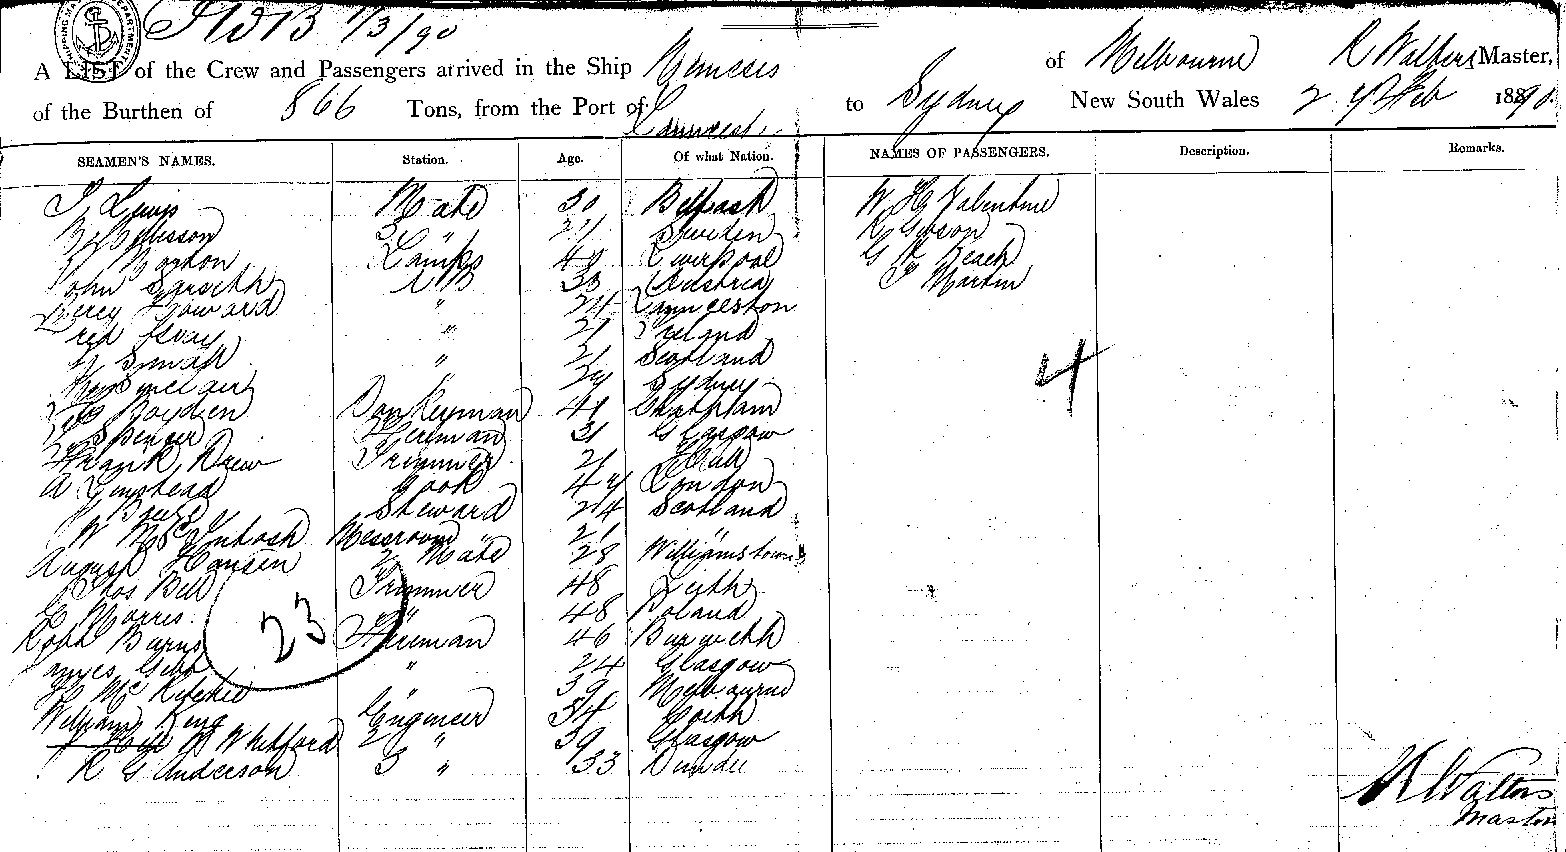 1/3/90
A LIST of the Crew and Passengers arrived in the Ship Nemesis of Melbourne R Walters Master,
of the Burthen of 866 Tons, from the Port of Launcest to Sydney New South Wales 27 Feb 1890
SEAMEN'S NAMES. Station. Age. Of what Nation. NAMES OF PASSENGERS. Description. Remarks.
Lewis Mate 30 Belfast W H Valentine
3 " Sweden R Gibson
Lamps Liverpool G Beach
John AB 33 Austria Martin
Percy Howard " 24 Launceston
Fred " 21 Ireland
" 21 Scotland
Sinclair " Sydney
Boyden Donkeyman 41 Chatham
Spencer Fireman 31 Glasgow
Frank Drew Trimmer 21 Hull
A Linstead Cook 47 London
Steward 24 Scotland
W McIntosh Messroom 21 "
August Hansen 2 Mate 28 Williamstown
Thos Bell Trimmer 48 Leith
G Morris " 48 Poland
Robt Burns Fireman 46
James Gibb " 24 Glasgow
McRitchie " 39 Melbourne
William King Engineer 54 Leith
Whitford 2 " 39 Glasgow
R G Anderson 3 " 33 Dundee
4
23
R Walters
Master